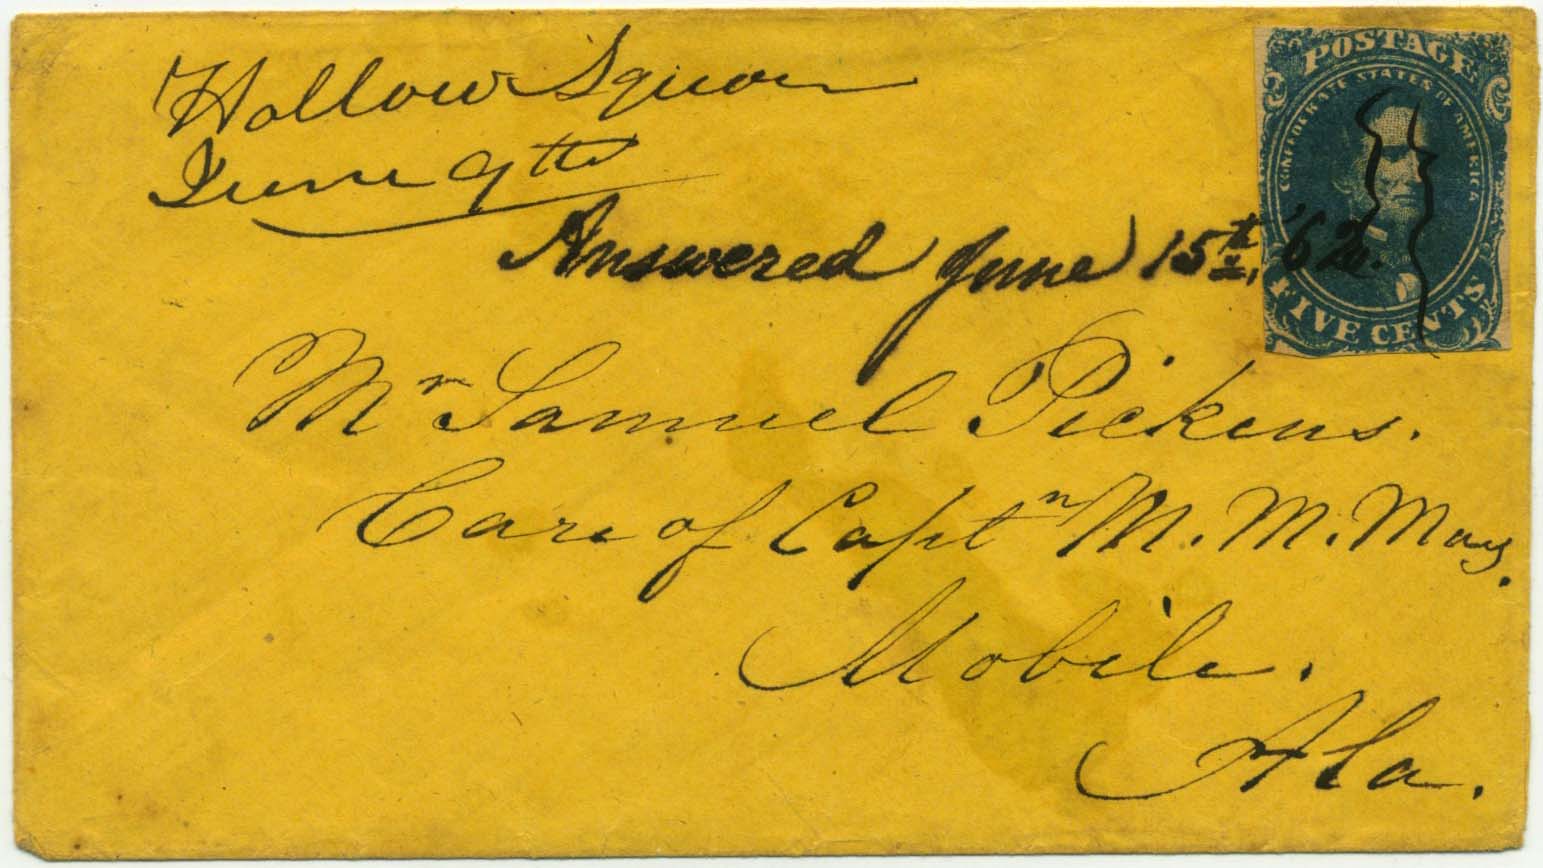 Hollow Square
June 9th
Answered June 15th, '62.
Mr Samuel Pickens.
Care of Captn M. M. May.
Mobile.
Ala.
POSTAGE
CONFEDERATE STATES OF AMERICA
FIVE CENTS